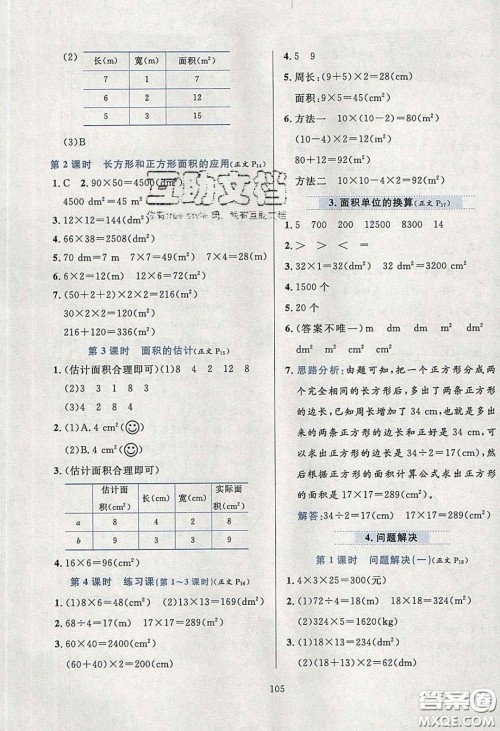 (2)
长(m) 宽(m) 面积(m²)
7 1 7
6 2 12
5 3 15
(3)B
第2课时 长方形和正方形面积的应用(正文P14)
1. C 2. 90×50=4500(dm²)
4500 dm²=45 m²
3. 12×12=144(dm²)
4. 66×38=2508(m²)
5. 70 dm=7 m 7×7=49(m²)
6. 6×2=12(m) 7×4=28(m)
7. (50+2+2)×2×2=216(m)
30×2×2=120(m)
216+120=336(m)
第3课时 面积的估计(正文P15)
1. (估计面积合理即可)(1)8 4 2 12 8
(2)3 4 3 1 8 1
2. (1)A. 4 cm²
(2)B. 4 cm²
3. (估计面积合理即可)
估计面积(cm²) 长(cm) 宽(cm) 实际面积(cm²)
a 8 4 2 8
b 9 3 3 9
4. 16×6=96(cm²)
第4课时 练习课(第1~3课时)(正文P16)
1. (1)8×6=48(m²) (2)13×13=169(dm²)
2. (1)D (2)C (3)B
3. 60×40=2400(cm²)
(60+40)×2=200(cm)
4. 5 9
5. 周长:(9+5)×2=28(cm)
面积:9×5=45(cm²)
6. 方法一 10×(10-2)=80(cm²)
(10-4)×2=12(cm²)
80+12=92(cm²)
方法二 10×10-4×2=92(cm²)
3. 面积单位的换算(正文P17)
1. 5 700 200 8300 14
2. > > < =
3. 40×80=3200(cm²) 32 dm²=3200 cm²
4. 1500个
5. 20个
6. (答案不唯一) m dm m² dm²
dm² cm² dm² m²
7. 思路分析:由题可知,把一个正方形分成两个完全相同的长方形后,多出了两条正方形的边长,已知周长增加了34 cm,也就是多出来的两条正方形的边长和正好是34 cm,可以求出正方形的边长34÷2=17(cm),然后根据正方形的面积计算公式求出正方形的面积,即17×17=289(cm²)。
解答:34÷2=17(cm)
17×17=289(cm²)
4. 问题解决
第1课时 问题解决(一)(正文P18)
1. 4×3×25=300(元)
2. (1)72÷4=18(m) (2)16×2=32(m)
3. (1)18×9=162(dm²)
(2)162÷2=81(dm²)
105
互助文档
答案圈
MXQE.COM